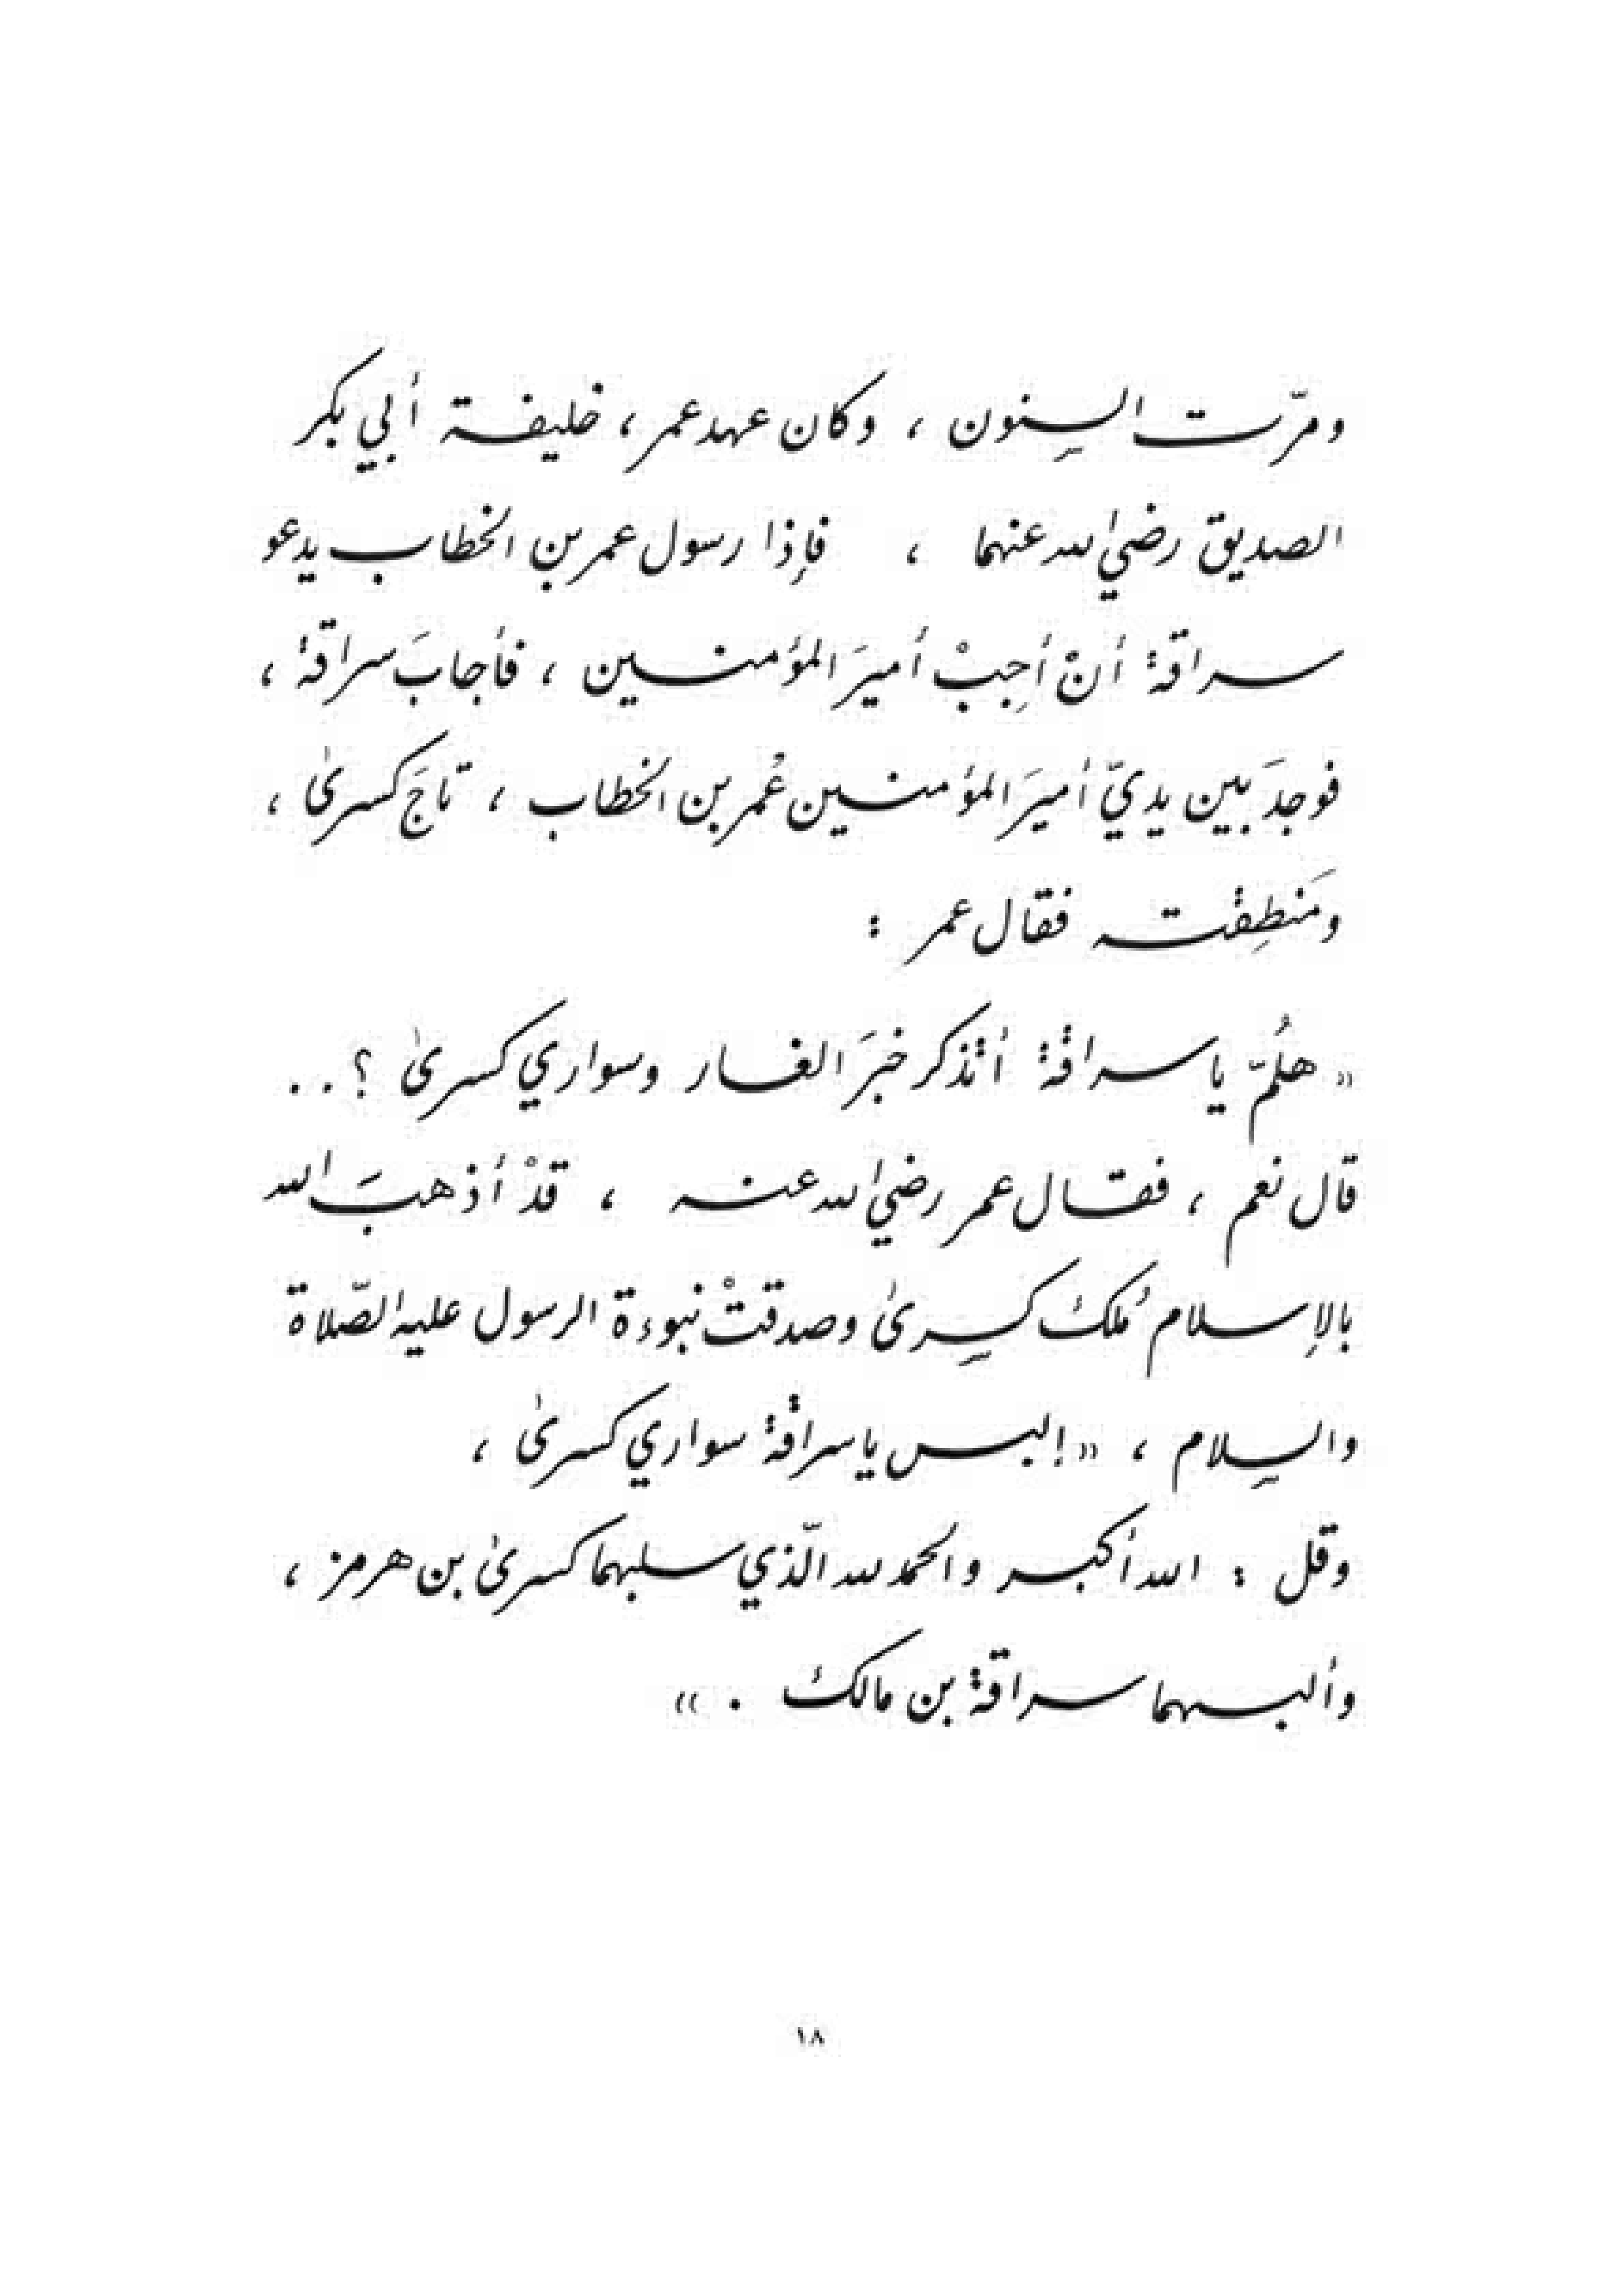 ومرّت السنون ، وكان عهد عمر ، خليفة أبي بكر
الصديق رضي الله عنهما ، فإذا رسول عمر بن الخطاب يدعو
سراقة أنْ أجِبْ أميرَ المؤمنين ، فأجابَ سراقة ،
فوجدَ بين يديّ أميرَ المؤمنين عُمر بن الخطاب ، تاجَ كسرىٰ ،
ومَنطِقته فقال عمر :
« هلُمّ يا سراقة أتذكر خبرَ الغار وسواري كسرىٰ ؟..
قال نعم ، فقال عمر رضي الله عنه ، قدْ أذهبَ الله
بالإسلام مُلك كسرىٰ وصدقتْ نبوءة الرسول عليه الصّلاة
والسلام ، « إلبس يا سراقة سواري كسرىٰ ،
وقل : الله أكبر والحمد لله الّذي سلبهما كسرىٰ بن هرمز ،
وألبسهما سراقة بن مالك . »
١٨